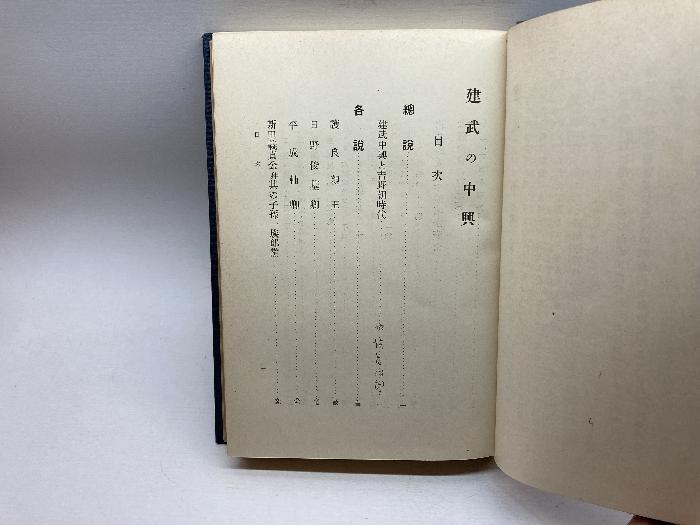 建武の中興
目次
總說
建武中興と吉野朝時代
各說
護良親王
日野俊基卿
平成輔卿
新田義貞公並其の子孫一族郎黨
目次
一